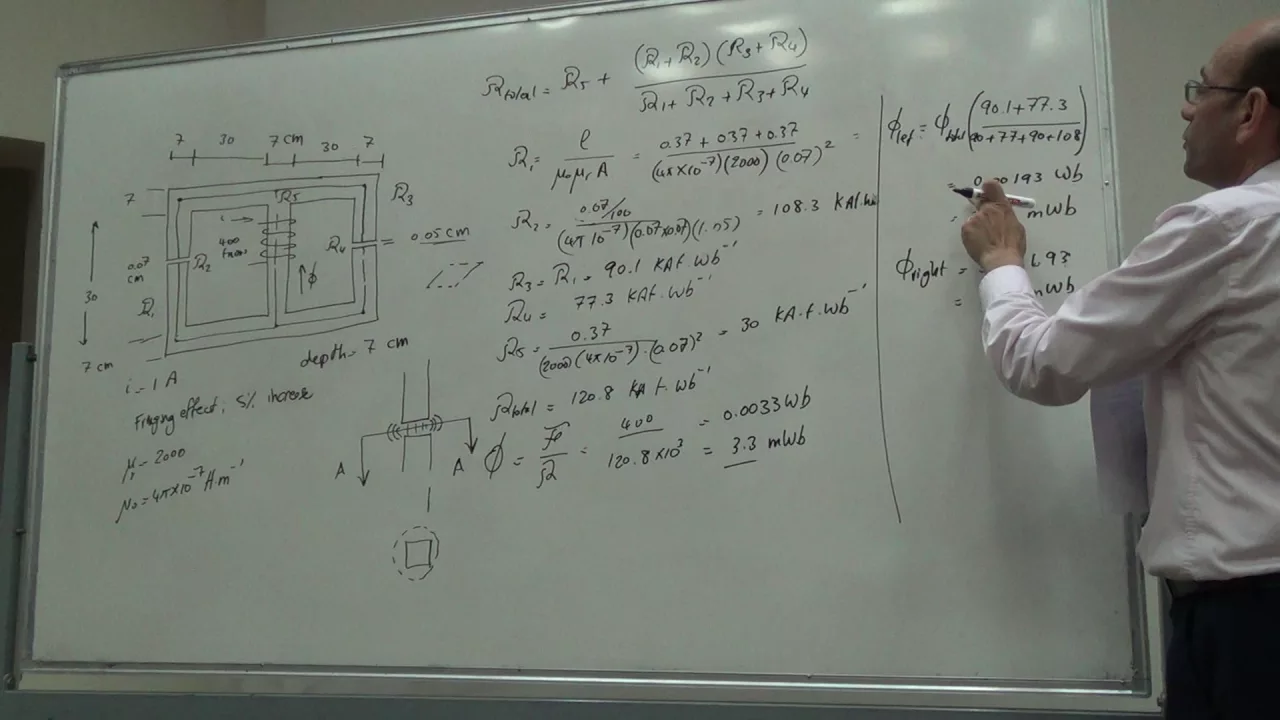 7 30 7 cm 30 7
7
R5
R3
i
400
turns
R2
R4
= 0.05 cm
0.07
cm
ϕ
30
R1
7 cm
depth = 7 cm
i = 1 A
Fringing effect; 5% increase
μr = 2000
μo = 4π×10⁻⁷ H.m⁻¹
A A
Rtotal = R5 + (R1 + R2)(R3 + R4) / R1 + R2 + R3 + R4
R1 = l / μo μr A = 0.37 + 0.37 + 0.37 / (4π×10⁻⁷)(2000)(0.07)² =
R2 = 0.07/100 / (4π 10⁻⁷)(0.07×0.07)(1.05) = 108.3 KAt.
R3 = R1 = 90.1 KAt.Wb⁻¹
R4 = 77.3 KAt.Wb⁻¹
R5 = 0.37 / (2000)(4π×10⁻⁷).(0.07)² = 30 KA.t.Wb⁻¹
Rtotal = 120.8 KAt.Wb⁻¹
ϕ = F / R = 400 / 120.8×10³ = 0.0033 Wb
= 3.3 mWb
ϕleft = ϕtotal (90.1 + 77.3 / 90+77+90+108)
= 193 Wb
= mWb
ϕright = 93
= mWb